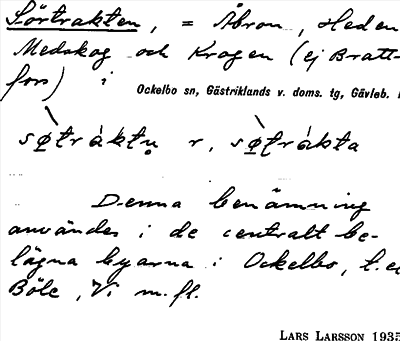 Sörtrakten, = Åbron, Heden
Medskog och Krogen (ej Bratt-
fors) i Ockelbo sn, Gästriklands v. doms. tg, Gävleb.
sø̀tráktn̥ r, sø̀trákta
Denna benämning
användes i de centralt be-
lägna byarna i Ockelbo, t.ex
Böle, Vi m.fl.
LARS LARSSON 1935